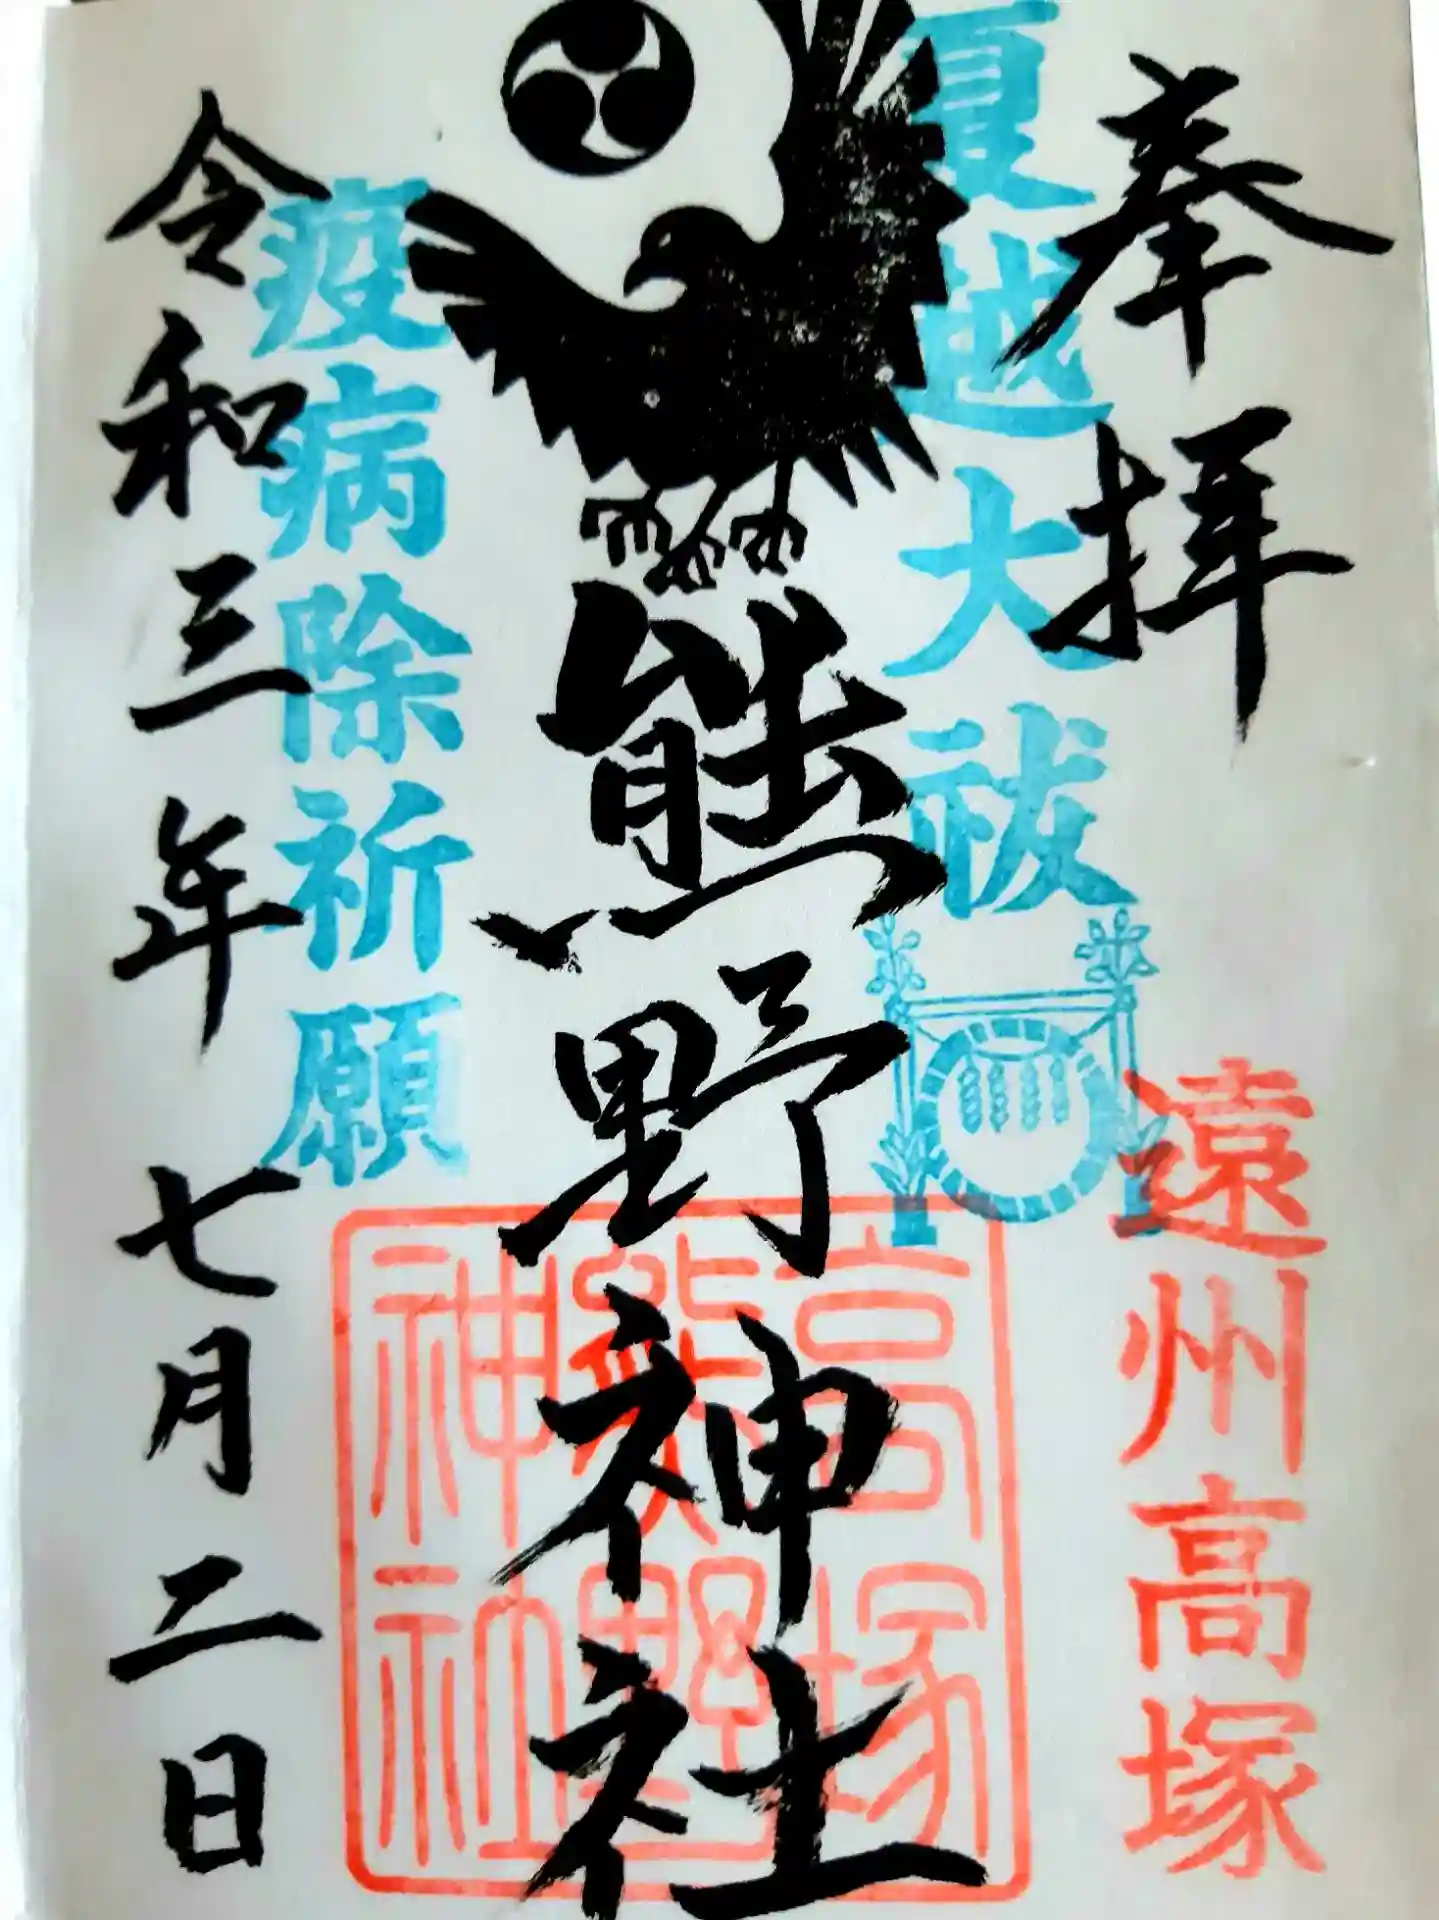 奉拝
夏越大祓
遠州高塚
熊野神社
高塚
熊野
神社
疫病除祈願
令和三年七月二日